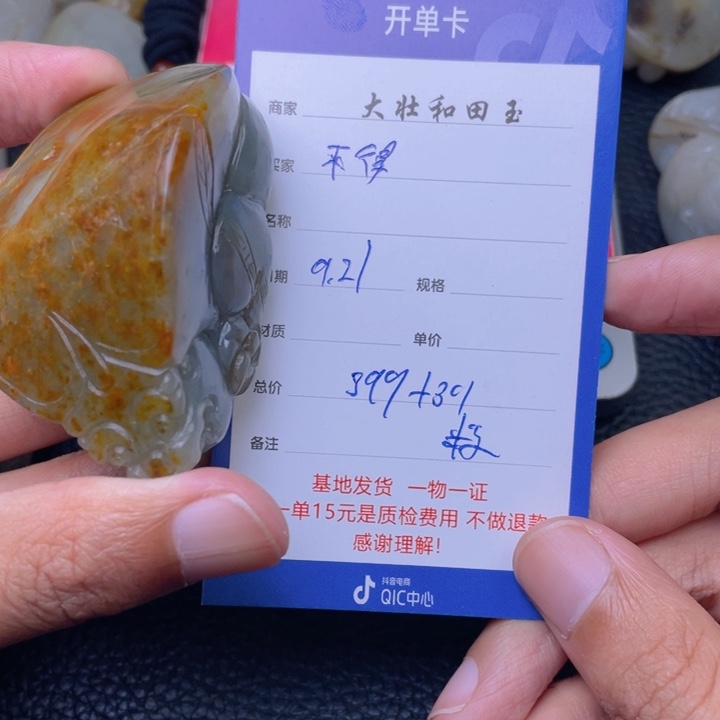 开单卡
商家 大壮和田玉
买家
名称
日期 9.21 规格
材质 单价
总价 399+39
备注
基地发货 一物一证
一单15元是质检费用 不做退款
感谢理解!
抖音电商
QIC中心